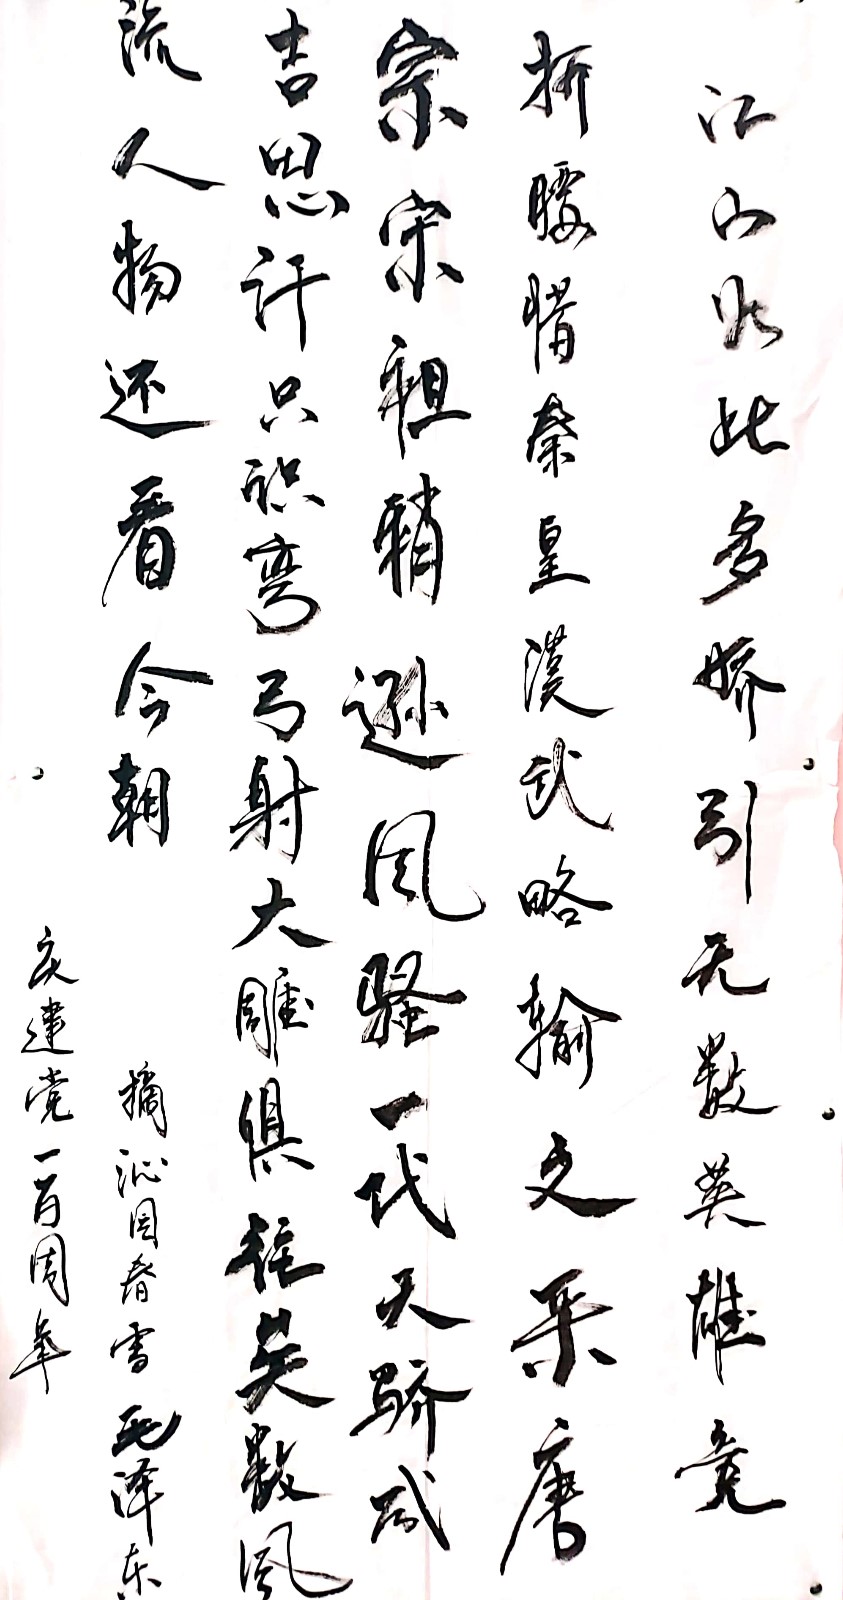 江山如此多娇引无数英雄竞
折腰惜秦皇漢武略输文采唐
宗宋祖稍逊风骚一代天骄成
吉思汗只识弯弓射大雕俱往矣数风
流人物还看今朝
摘沁园春雪毛泽东
庆建党一百周年